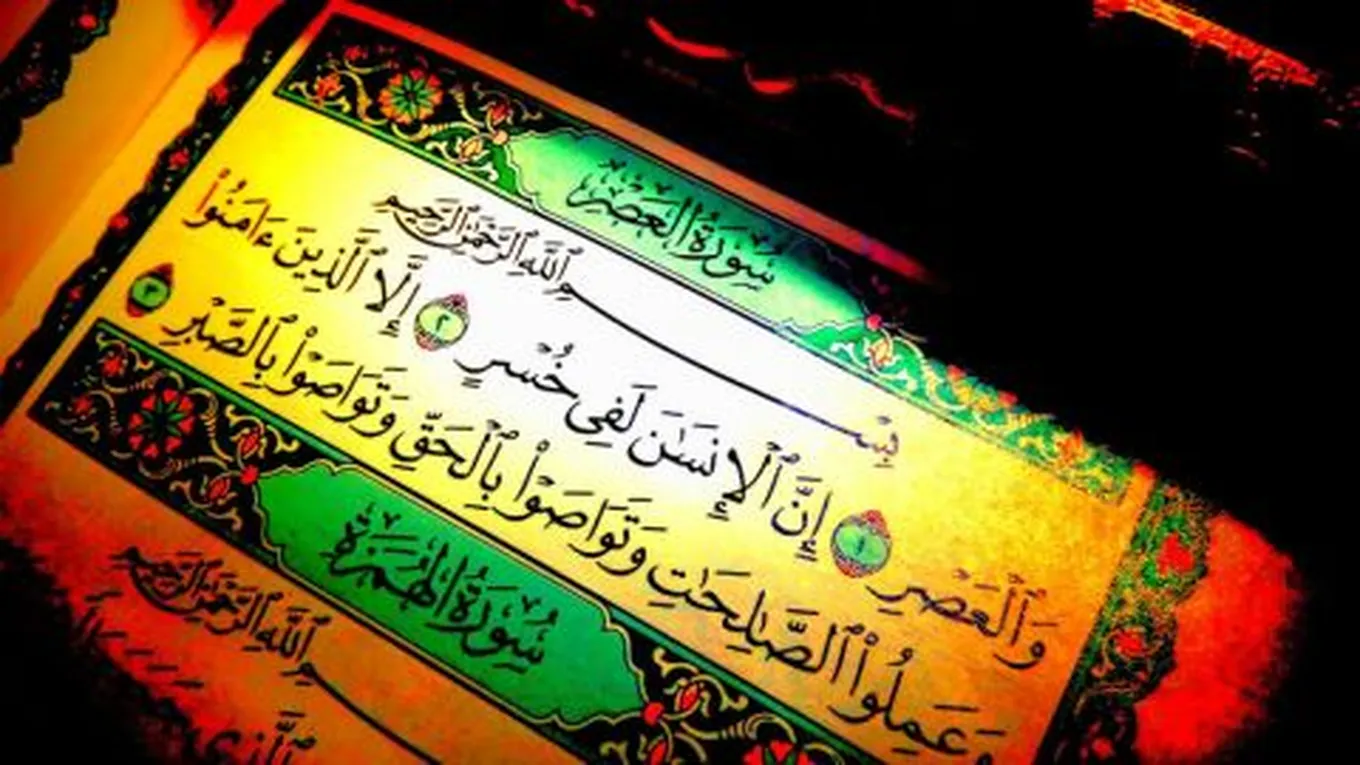 سُورَةُ العَصْرِ
بِسْمِ ٱللَّهِ ٱلرَّحْمَٰنِ ٱلرَّحِيمِ
وَٱلْعَصْرِ ١ إِنَّ ٱلْإِنسَٰنَ لَفِى خُسْرٍ ٢ إِلَّا ٱلَّذِينَ ءَامَنُوا۟
وَعَمِلُوا۟ ٱلصَّٰلِحَٰتِ وَتَوَاصَوْا۟ بِٱلْحَقِّ وَتَوَاصَوْا۟ بِٱلصَّبْرِ ٣
سُورَةُ الهُمَزَةِ
بِسْمِ ٱللَّهِ ٱلرَّحْمَٰنِ ٱلرَّحِيمِ